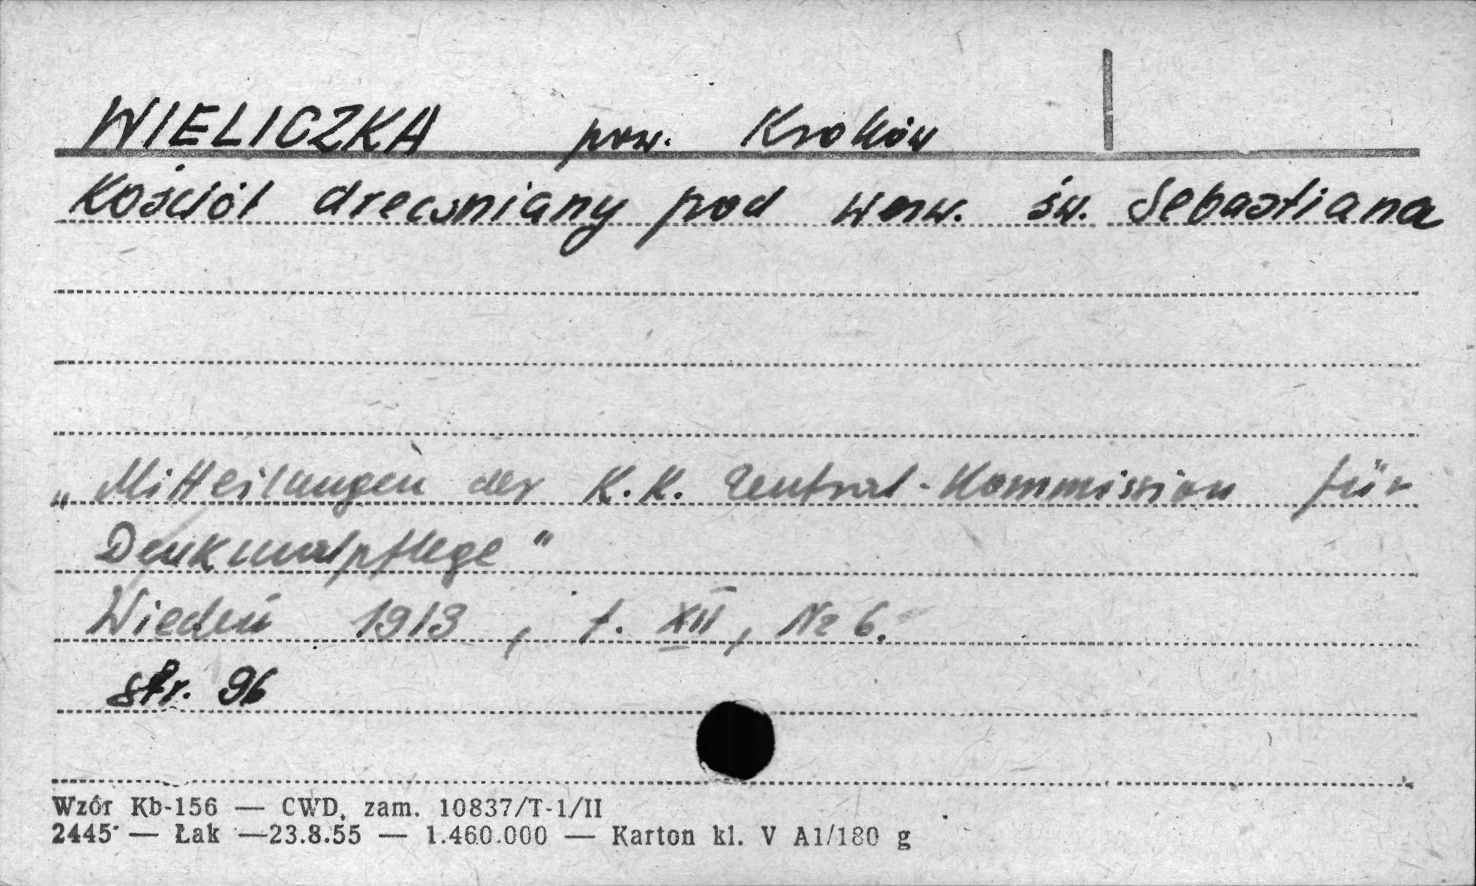 WIELICZKA pow. Kraków
Kościół drewniany pod wezw. św. Sebastiana
„Mitteilungen der K.K. Zentral-Kommission für
Denkmalpflege"
Wiedeń 1913, t. XII, Nr 6.
str. 96
Wzór Kb-156 — CWD, zam. 10837/T-1/II
2445 — Łak —23.8.55 — 1.460.000 — Karton kl. V A1/180 g